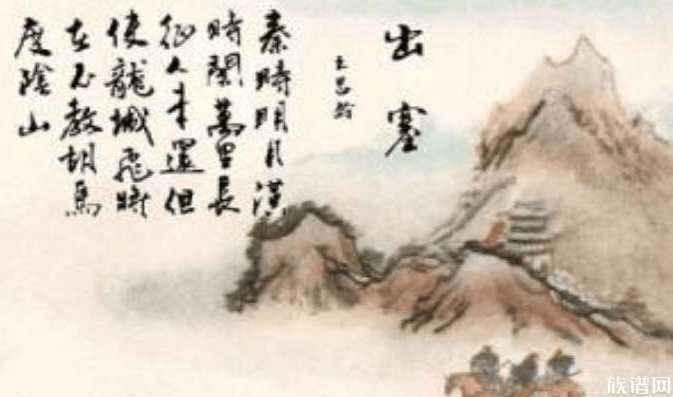 出塞
王昌龄
秦時明月漢
時關萬里長
征人未還但
使龍城飛將
在不教胡馬
度陰山
族谱网